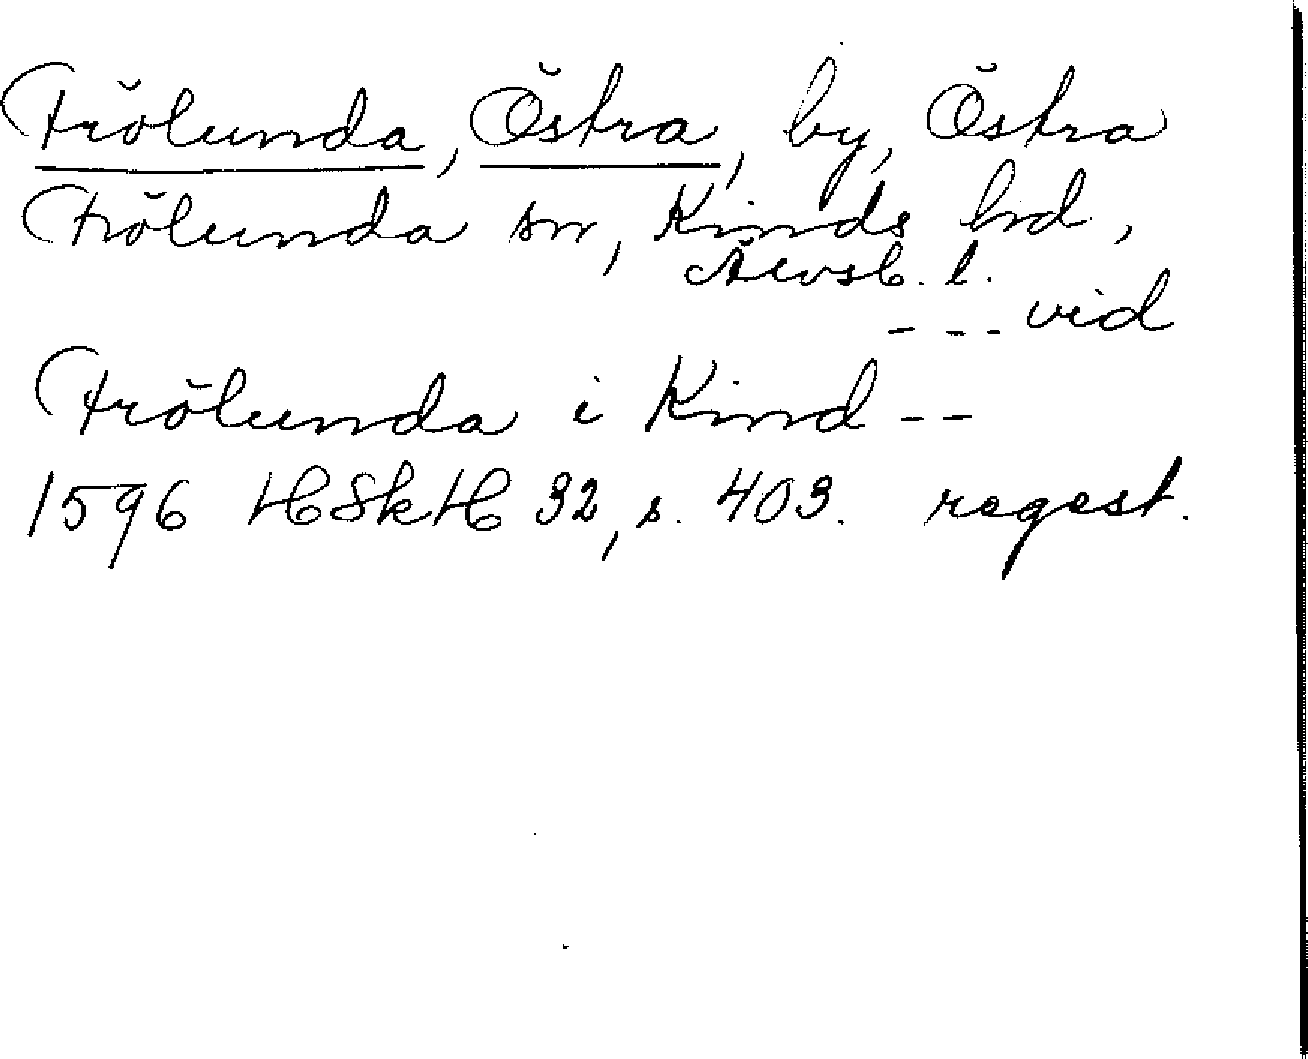 Frölunda, Östra, by, Östra
Frölunda sn, Kinds hd,
Älvsb. l.
--- vid
Frölunda i Kind --
1596 HSkH 32, s. 403. regest.